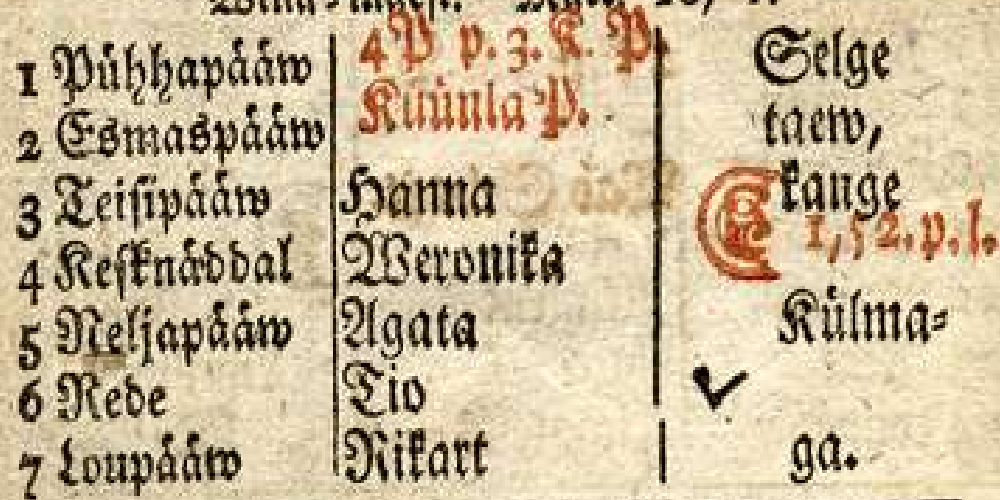 1 Pühhapääw 4 P p. 3. K. P. Selge
Küünla P.
2 Esmaspääw taew,
3 Teisipääw Hanna kange
1,52.p.l.
4 Kesknäddal Weronika
5 Neljapääw Agata Külma-
6 Rede Tio
7 Loupääw Rikart ga.